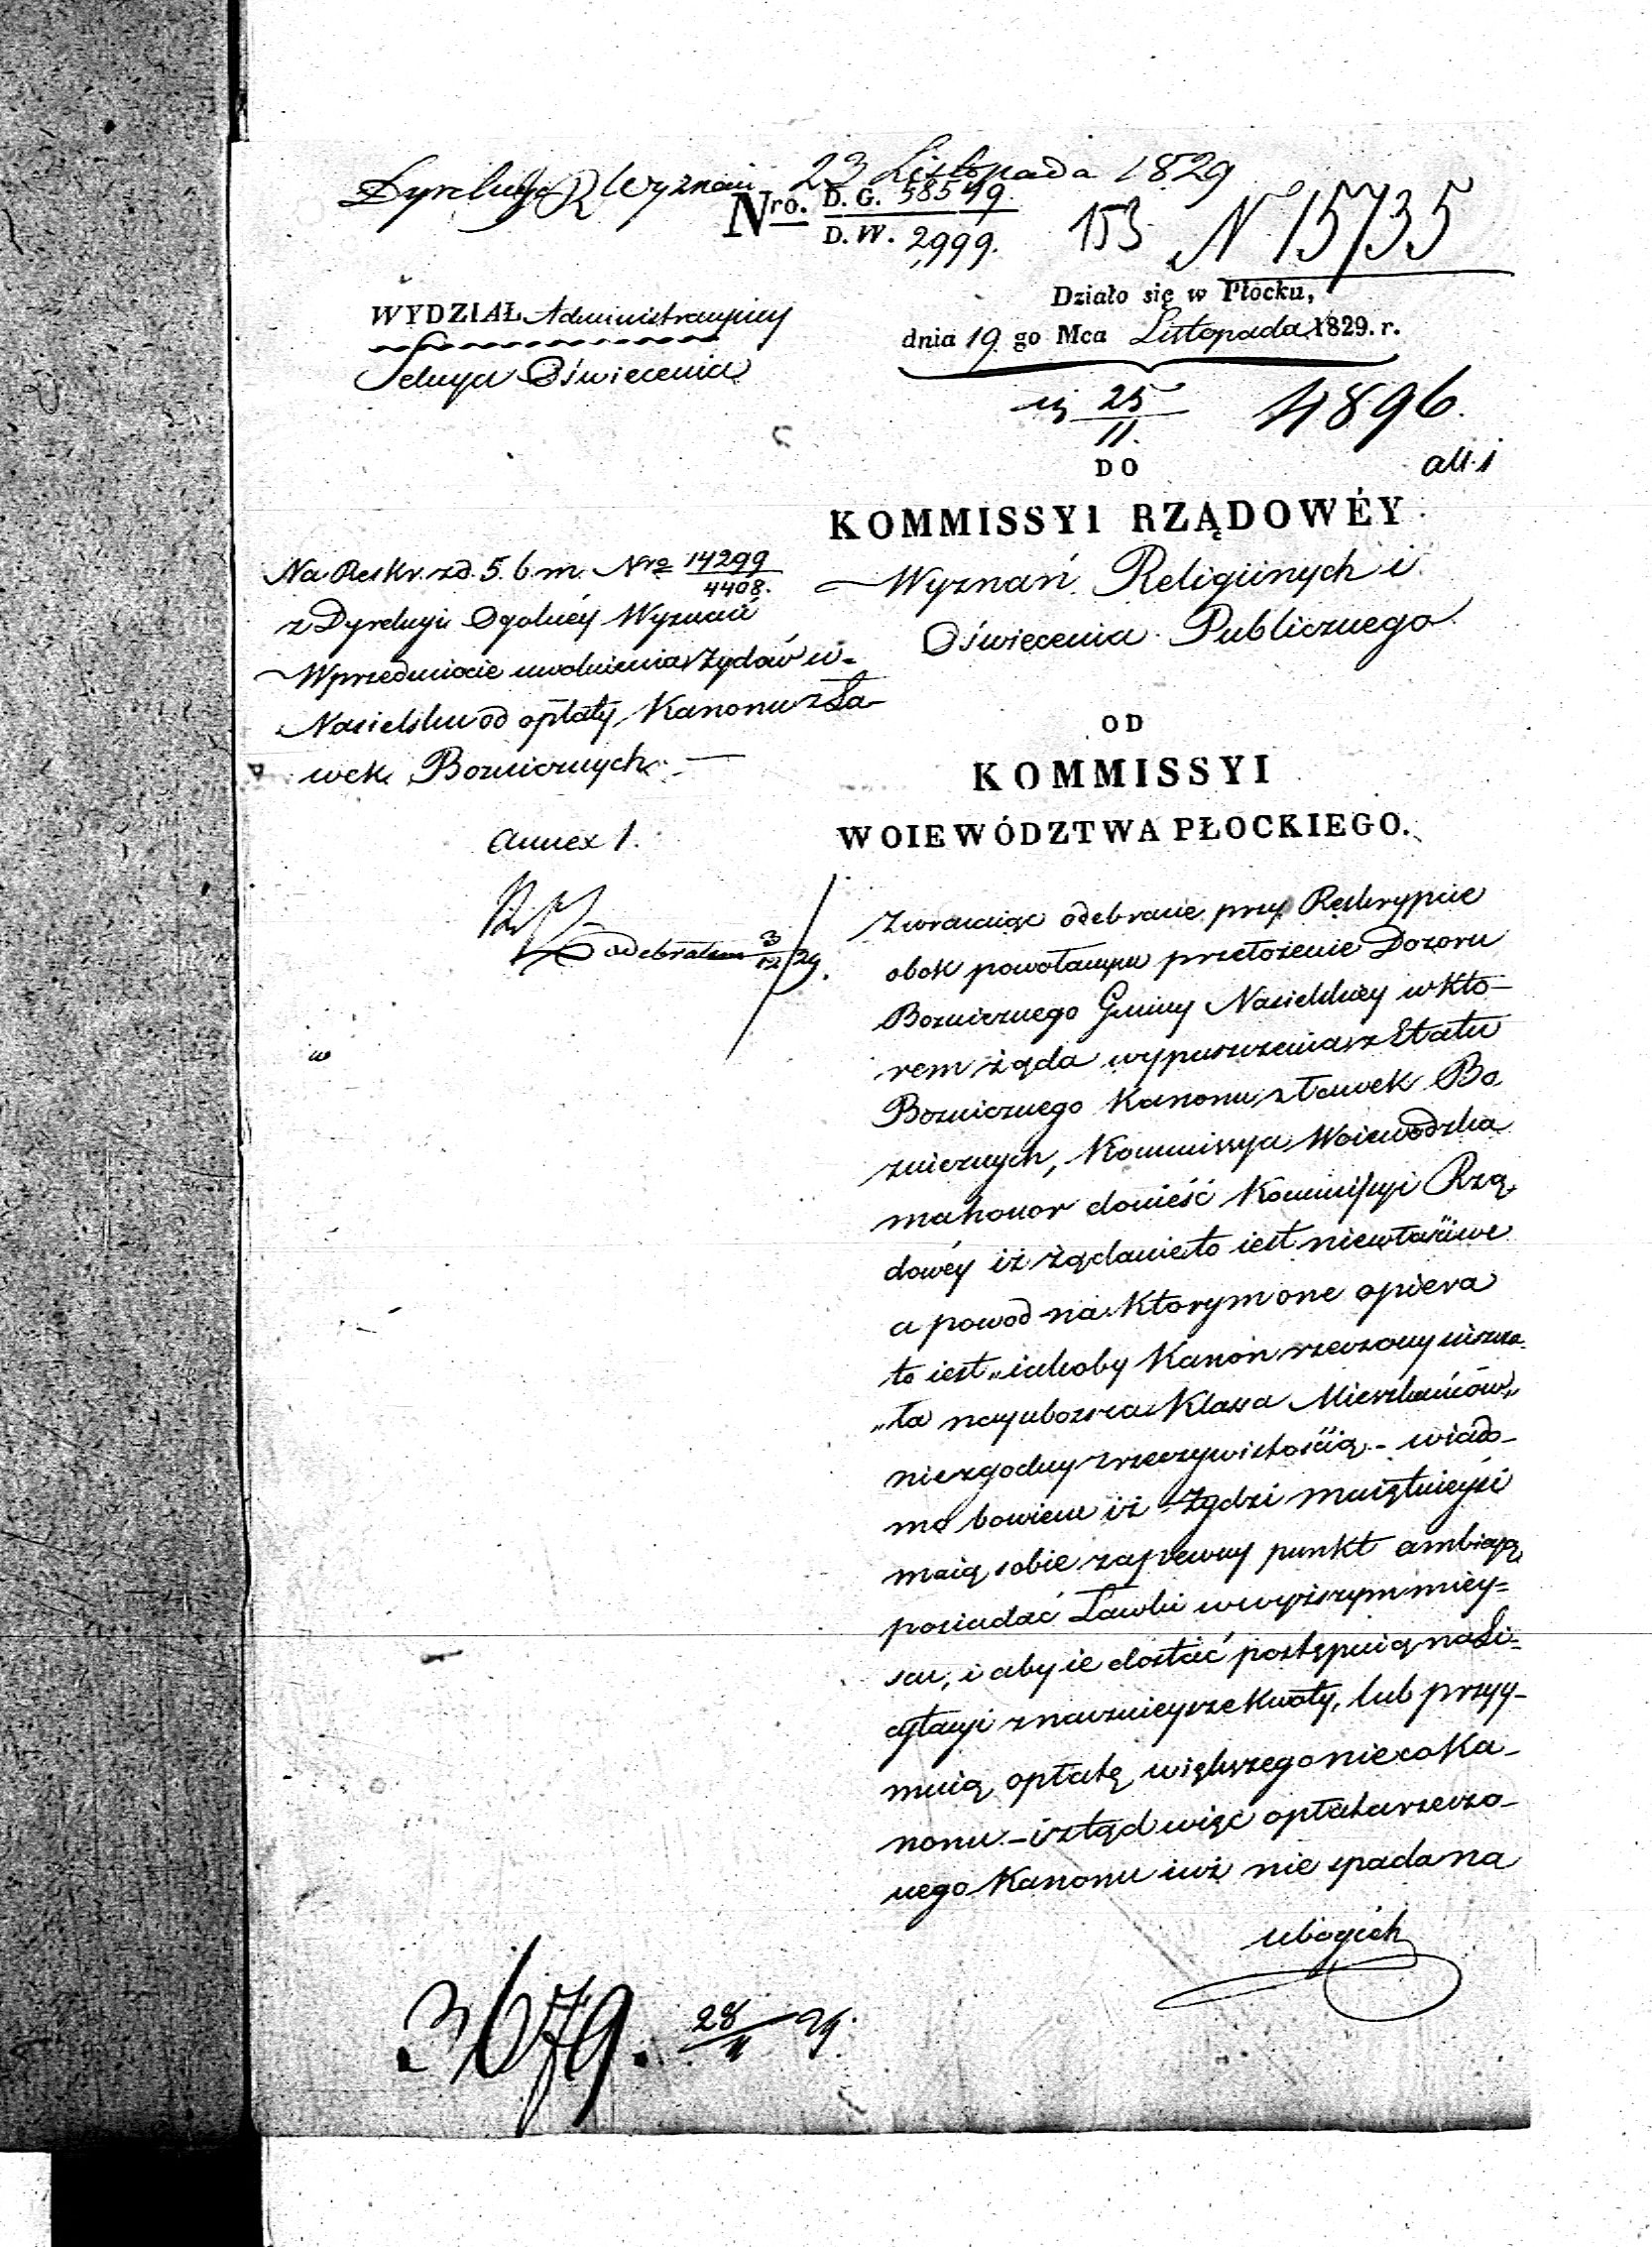 Dyrekcya Wyznań 23 Listopada 1829
Nro. D. G. 58549.
D. W. 2999.
153 N 15735
WYDZIAŁ Administracyiny
Sekcya Oświecenia
Działo się w Płocku,
dnia 19 go Mca Listopada 1829. r.
25
11.
4896.
all. 1
DO
KOMMISSYI RZĄDOWÉY
Wyznań Religiinych i
Oświecenia Publicznego
Na Reskr. z d. 5. b. m. Nro 14299
4408.
z Dyrekcyi Ogólnéy Wyznań
W przedmiocie uwolnienia Żydów w=
Nasielsku od opłaty Kanonu z Ła-
wek Boznicznych. —
Annex 1.
odebrałem 3/12 29.
OD
KOMMISSYI
WOIEWÓDZTWA PŁOCKIEGO.
Zwracaiąc odebrane przy Reskrypcie
obok powołanym przełożenie Dozoru
Boznicznego Gminy Nasielskiey w któ-
rem żąda wypuszczenia z Etatu
Boznicznego Kanonu z ławek Bo
znicznych, Kommissya Woiewodzka
ma honor donieść Kommissyi Rzą
dowéy iż żądanie to iest niewłaściwe
a powod na którym one opiera
to iest „iakoby Kanon rzeczony uiszcza
„ła nayubozsza Klassa Mieszkańców„
niezgodny z rzeczywistością - wiado-
mo bowiem iż Żydzi maiętnieysi
maią sobie za pewny punkt ambicyi
posiadać Ławki w wyższym miey=
scu, i aby ie dostać postępuią na Li=
cytacyi znacznieysze kwoty, lub przyy-
muią opłatę większego nieco Ka-
nonu - i ztąd więc opłata rzeczo-
nego Kanonu iuż nie spada na
ubogich
3679. 28/11 29.